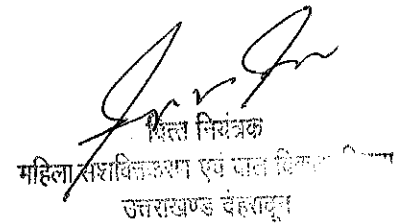 वित्त नियंत्रक
महिला सशक्तिकरण एवं बाल विकास
उत्तराखण्ड देहरादून